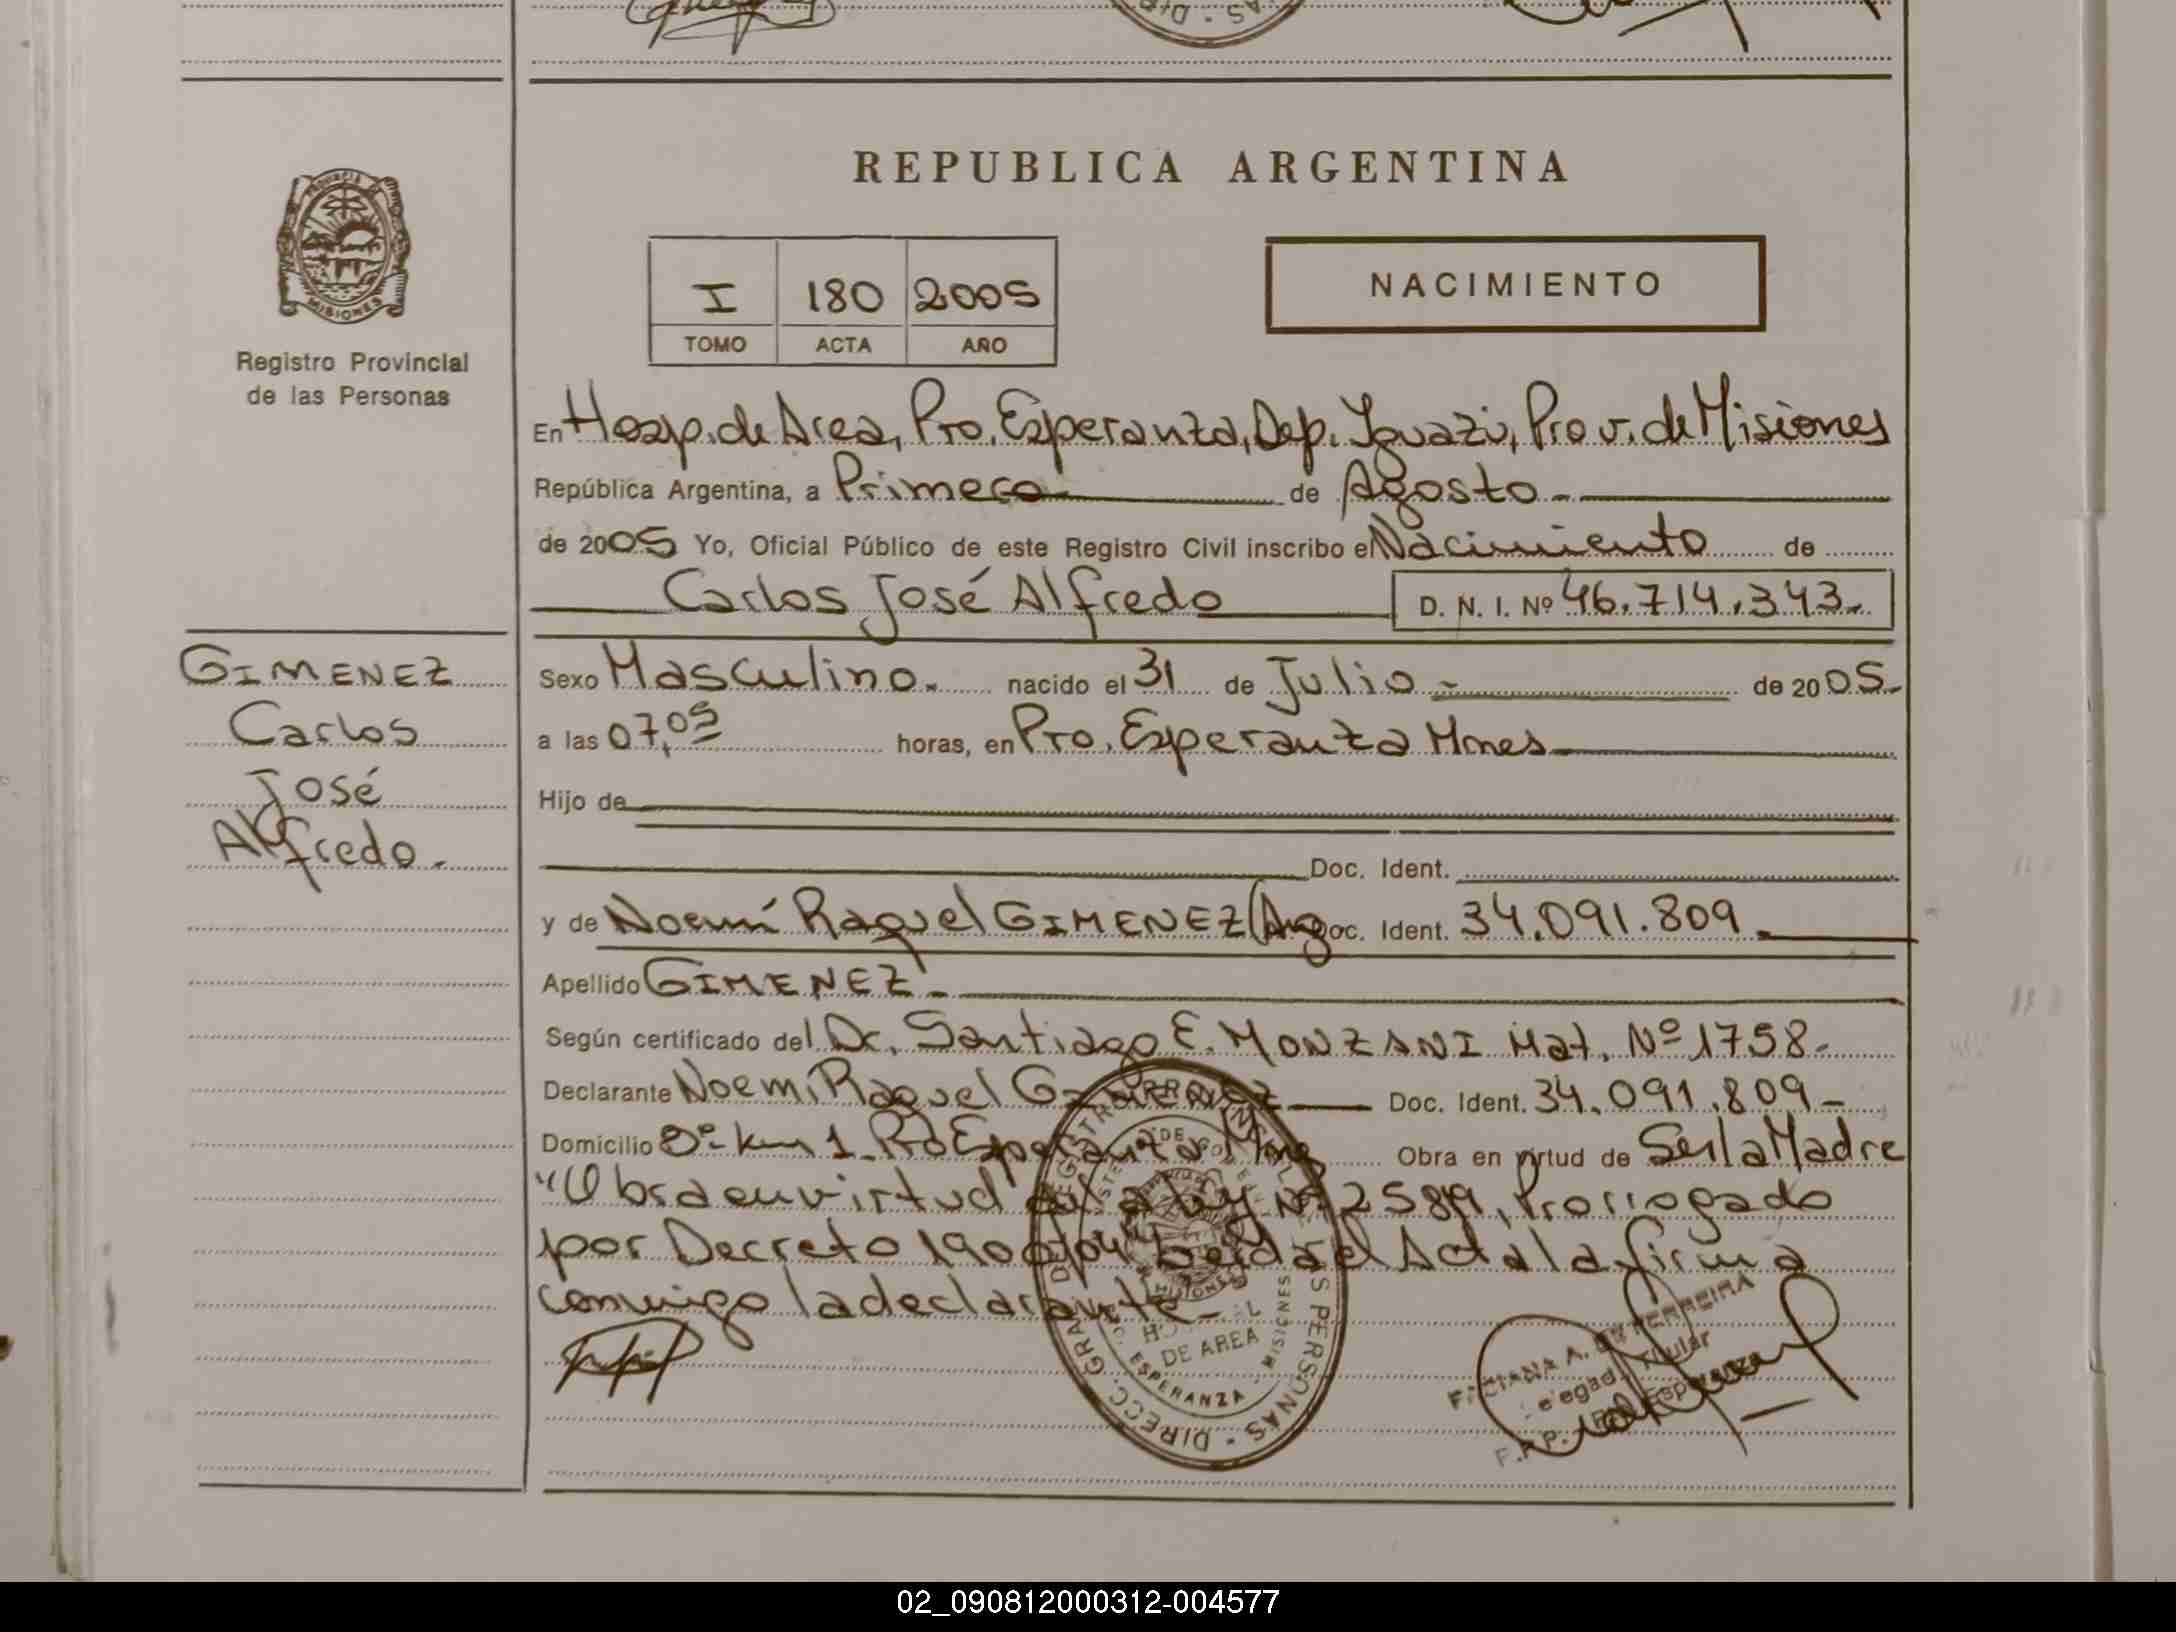 REPUBLICA ARGENTINA
PROVINCIA DE MISIONES
Registro Provincial
de las Personas
I 180 2005
TOMO ACTA AÑO
NACIMIENTO
En Hosp. de Area, Pto. Esperanza, Dep. Iguazú, Prov. de Misiones
República Argentina, a Primero de Agosto
de 2005 Yo, Oficial Público de este Registro Civil inscribo el Nacimiento de
Carlos José Alfredo D. N. I. Nº 46.714.343.
GIMENEZ
Carlos
José
Alfredo.
Sexo Masculino. nacido el 31 de Julio de 2005.
a las 07,05 horas, en Pto. Esperanza Mnes
Hijo de
Doc. Ident.
y de Noemí Raquel GIMENEZ (Arg Doc. Ident. 34.091.809.
Apellido GIMENEZ.
Según certificado del Dr. Santiago E. MONZANI Mat. Nº 1758-
Declarante Noemi Raquel GIMENEZ Doc. Ident. 34.091.809-
Domicilio km 1. Pto Esperanza Mnes Obra en virtud de Ser la Madre
"Obra en virtud de la ley Nº 2589, Prorrogado
por Decreto 1900/04" Leida el Acta la firma
conmigo la declarante
DIRECC. GRAL. DE REGISTRO PROVINCIAL DE LAS PERSONAS
HOSPITAL
DE AREA
ESPERANZA - MISIONES
FERREIRA
Titular
Esperanza
02_090812000312-004577